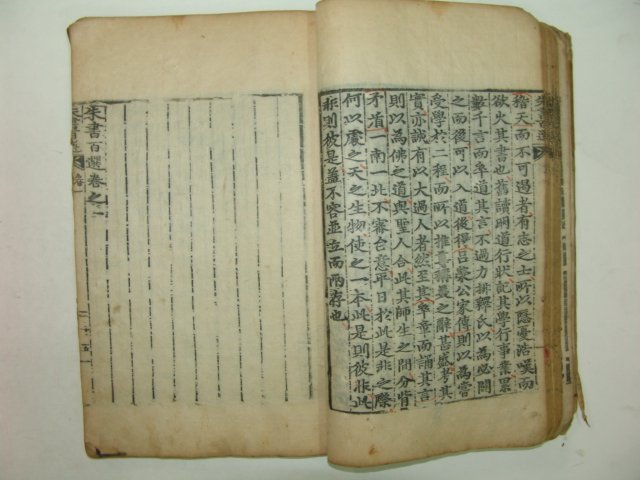 稽天而不可遏者有志之士所以隱憂浩嘆而
欲火其書也舊讀明道行狀記其學行事業累
數千言而卒道其言不過力排釋氏以為必闢
之而後可以入道後得呂滎公家傳則以為嘗
受學於二程而所以推尊稱美之辭甚盛考其
實亦誠有以大過人者然至其卒章而誦其言
則以為佛之道與聖人合此其師生之間分背
矛盾一南一北不審台意平日於此是非之際
何以處之天之生物使之一本此是則彼非此
非則彼是盖不容並立而兩存也
朱書百選卷之一